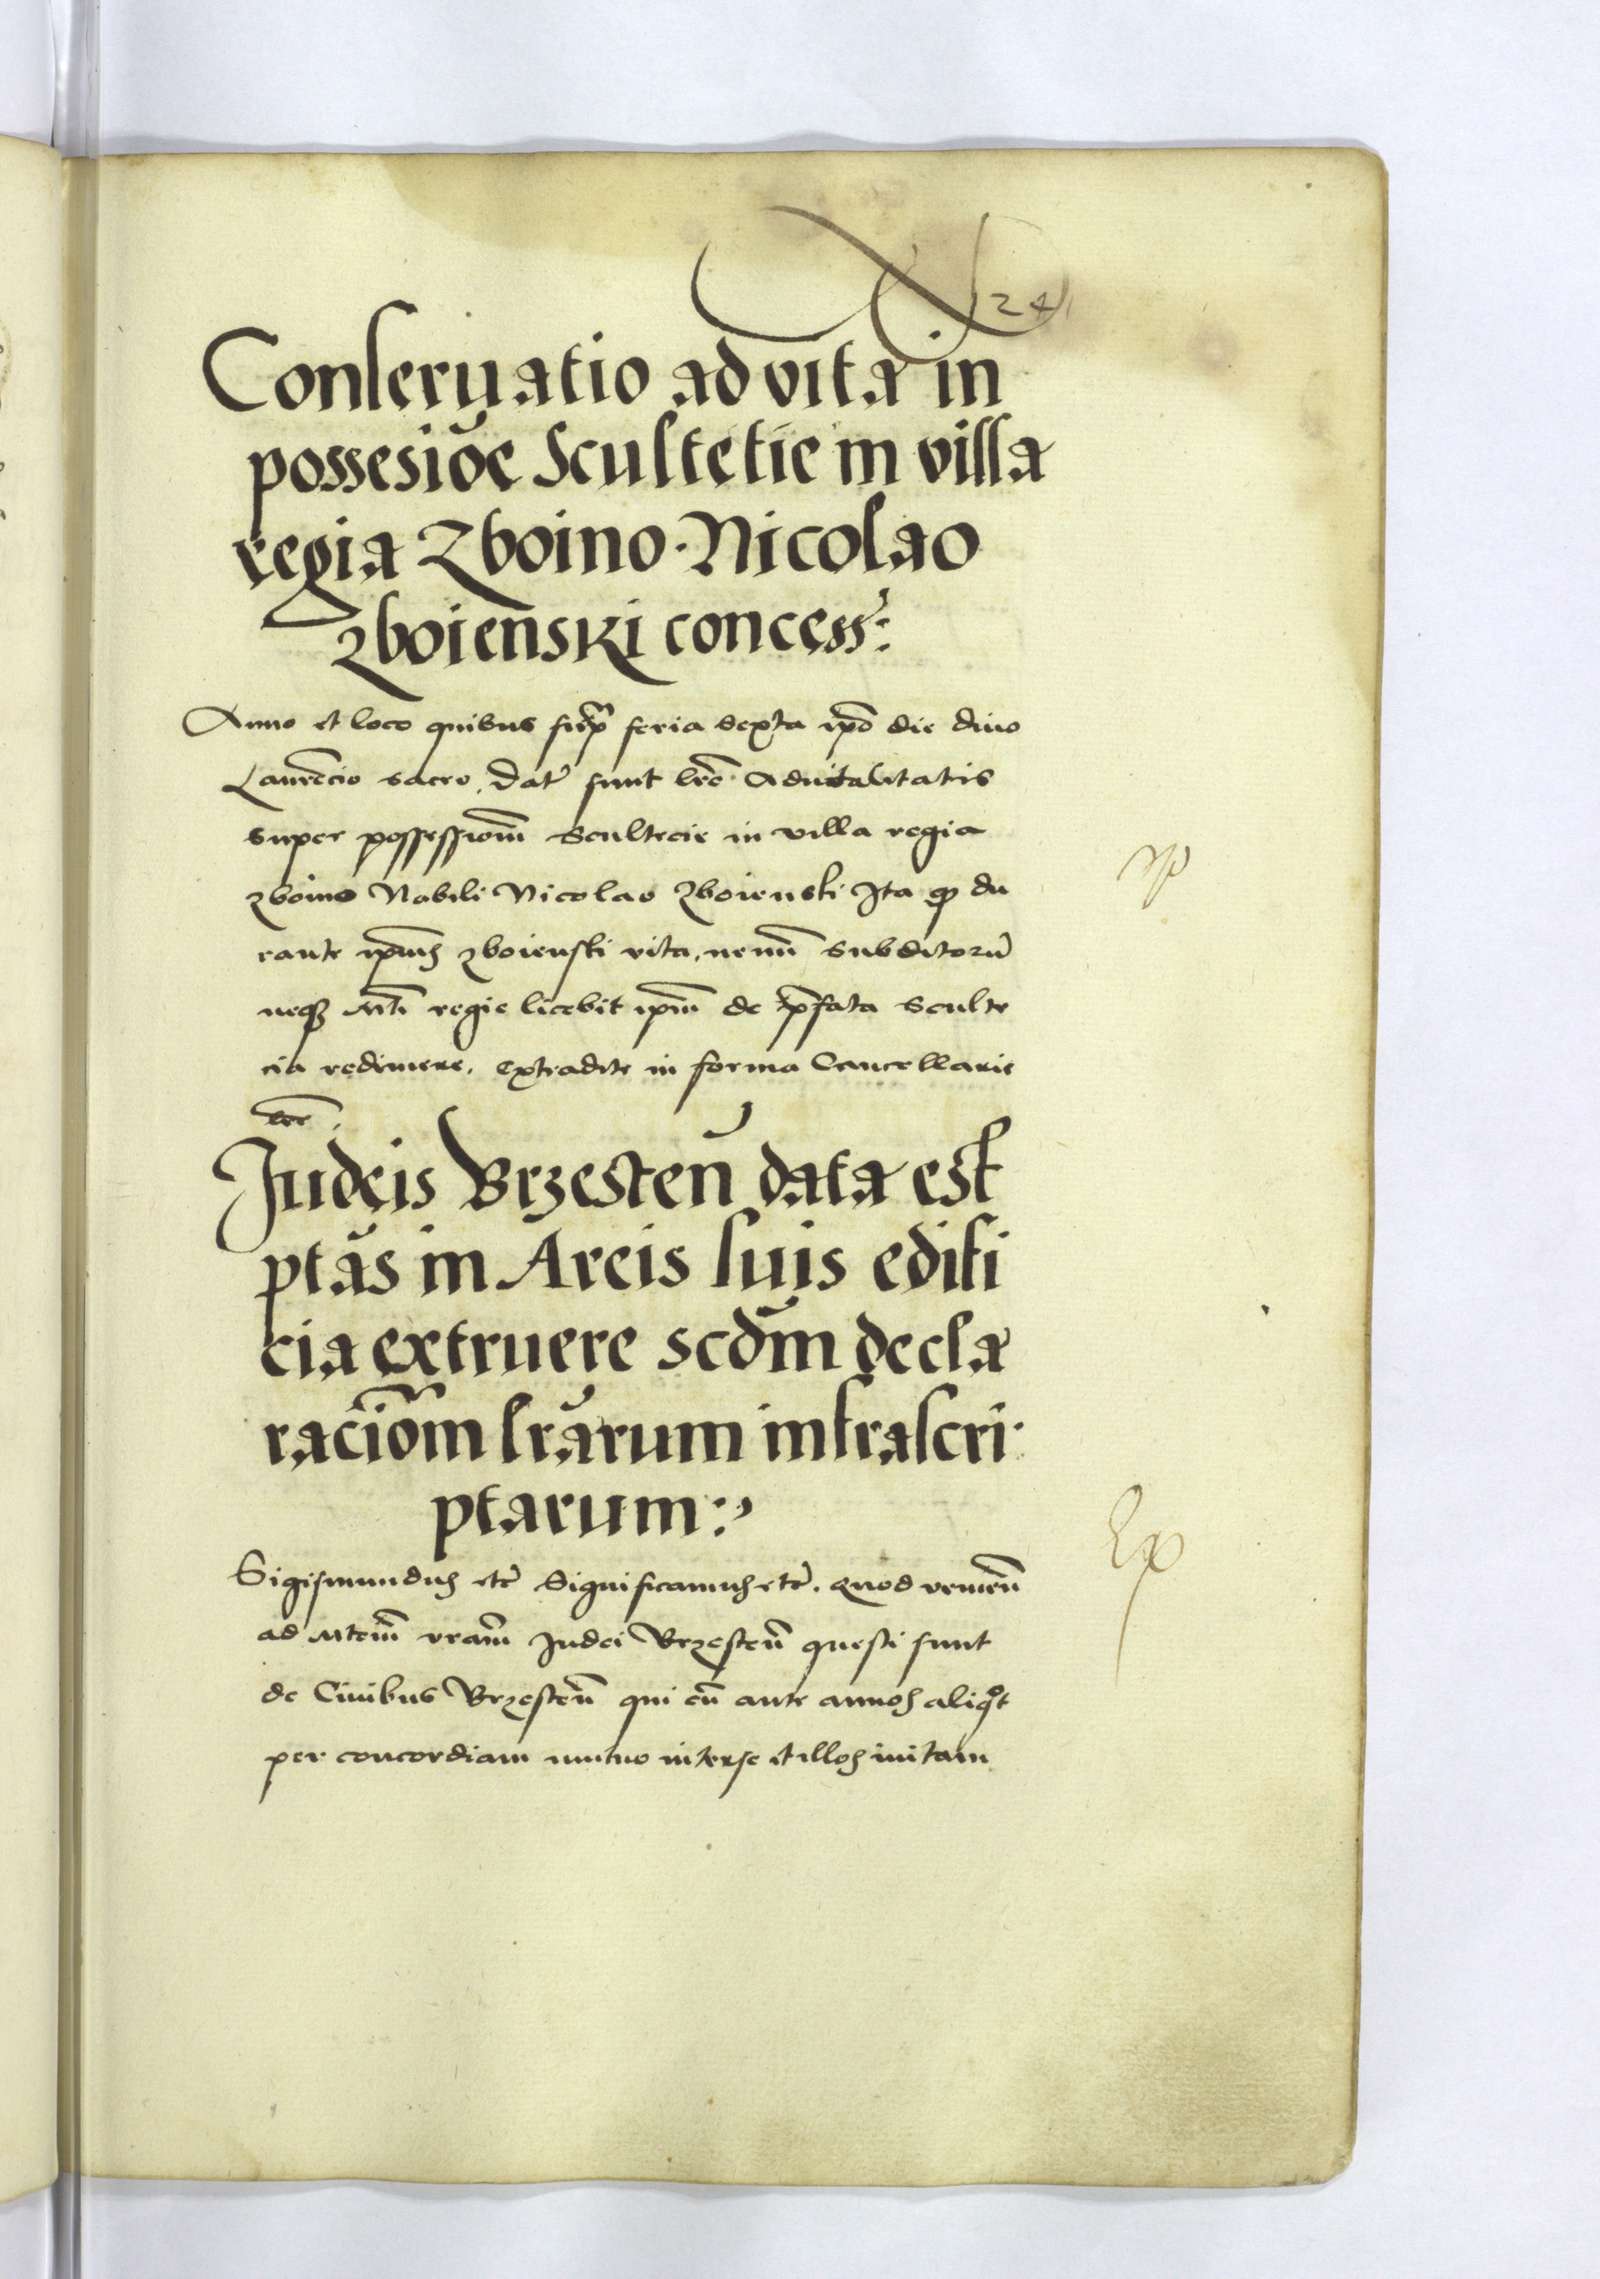 24
Conseruatio ad vitā in
possesiōe Scultetie in villa
regia Zboino Nicolao
Zboienski concess:
Anno et loco quibus supra feria sexta ipō die diuo
Laurēcio sacro, date sunt lrē Aduitalitatis
super possessionē Scultecie in villa regia
Zboino Nobili Nicolao Zboienski Ita q du
rante ipiuus Zboienski vita, nemī subditorū
neq Mti regie licebit ipm de pfata Sculte
cia redimere, extradite in forma Cancellarie
lrē.
Judeis Brzestēn data est
ptās in Areis suis edifi
cia extruere scdm decla
raciōm lrārum infrascri
ptarum:
Sigismundus etc Significamus etc. Quod venieñ
ad Mtem nram Judei Brzesteñ questi sunt
de Ciuibus Brzesteñ qui cū ante annos aliqot
per concordiam mutuo inter se et illos initam
Ex